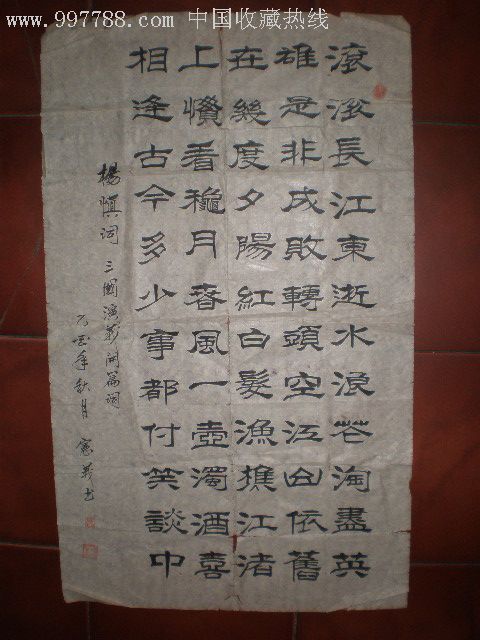 www.997788.com 中国收藏热线
滚滚長江東逝水浪花淘盡英
雄是非成敗轉頭空江山依舊
在幾度夕陽紅白髮漁樵江渚
上慣看穐月春風一壺濁酒喜
相逢古今多少事都付笑談中
楊慎词 三國演義開篇词
乙酉年秋月 书